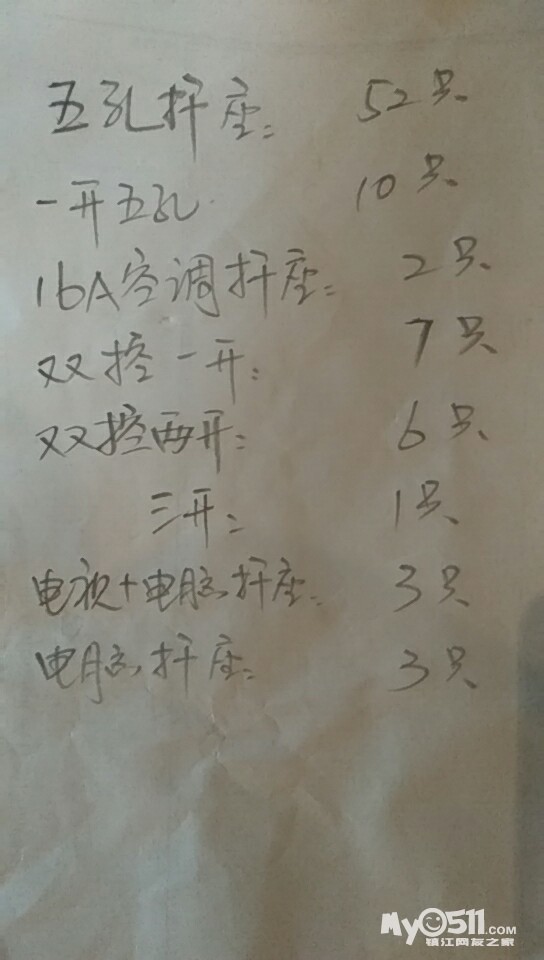 五孔扦座: 52只
一开五孔. 10只
16A空调扦座: 2只
双控一开: 7只
双控两开: 6只
三开: 1只
电视+电脑扦座: 3只
电脑扦座: 3只
My0511.com
镇江网友之家